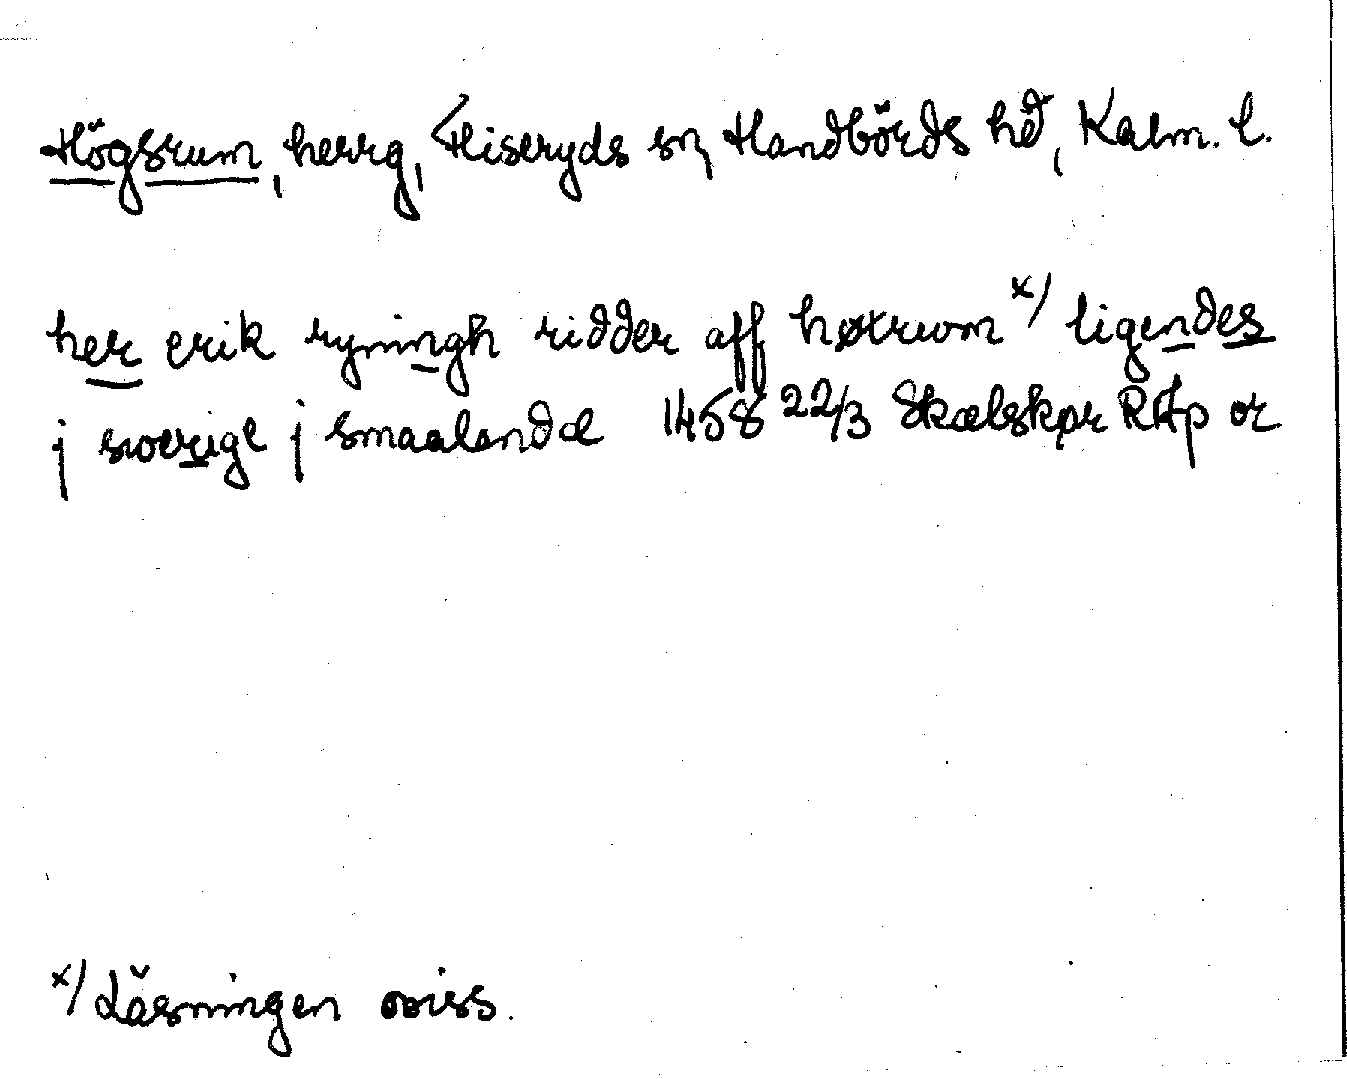 Högsrum, herrg, Fliseryds sn, Handbörds hd, Kalm. l.
her erik ryningh ridder aff høxrwm x/ ligendes
j swerige j smaalandæ 1458 22/3 Skælskør RAp or
x/ Läsningen oviss.